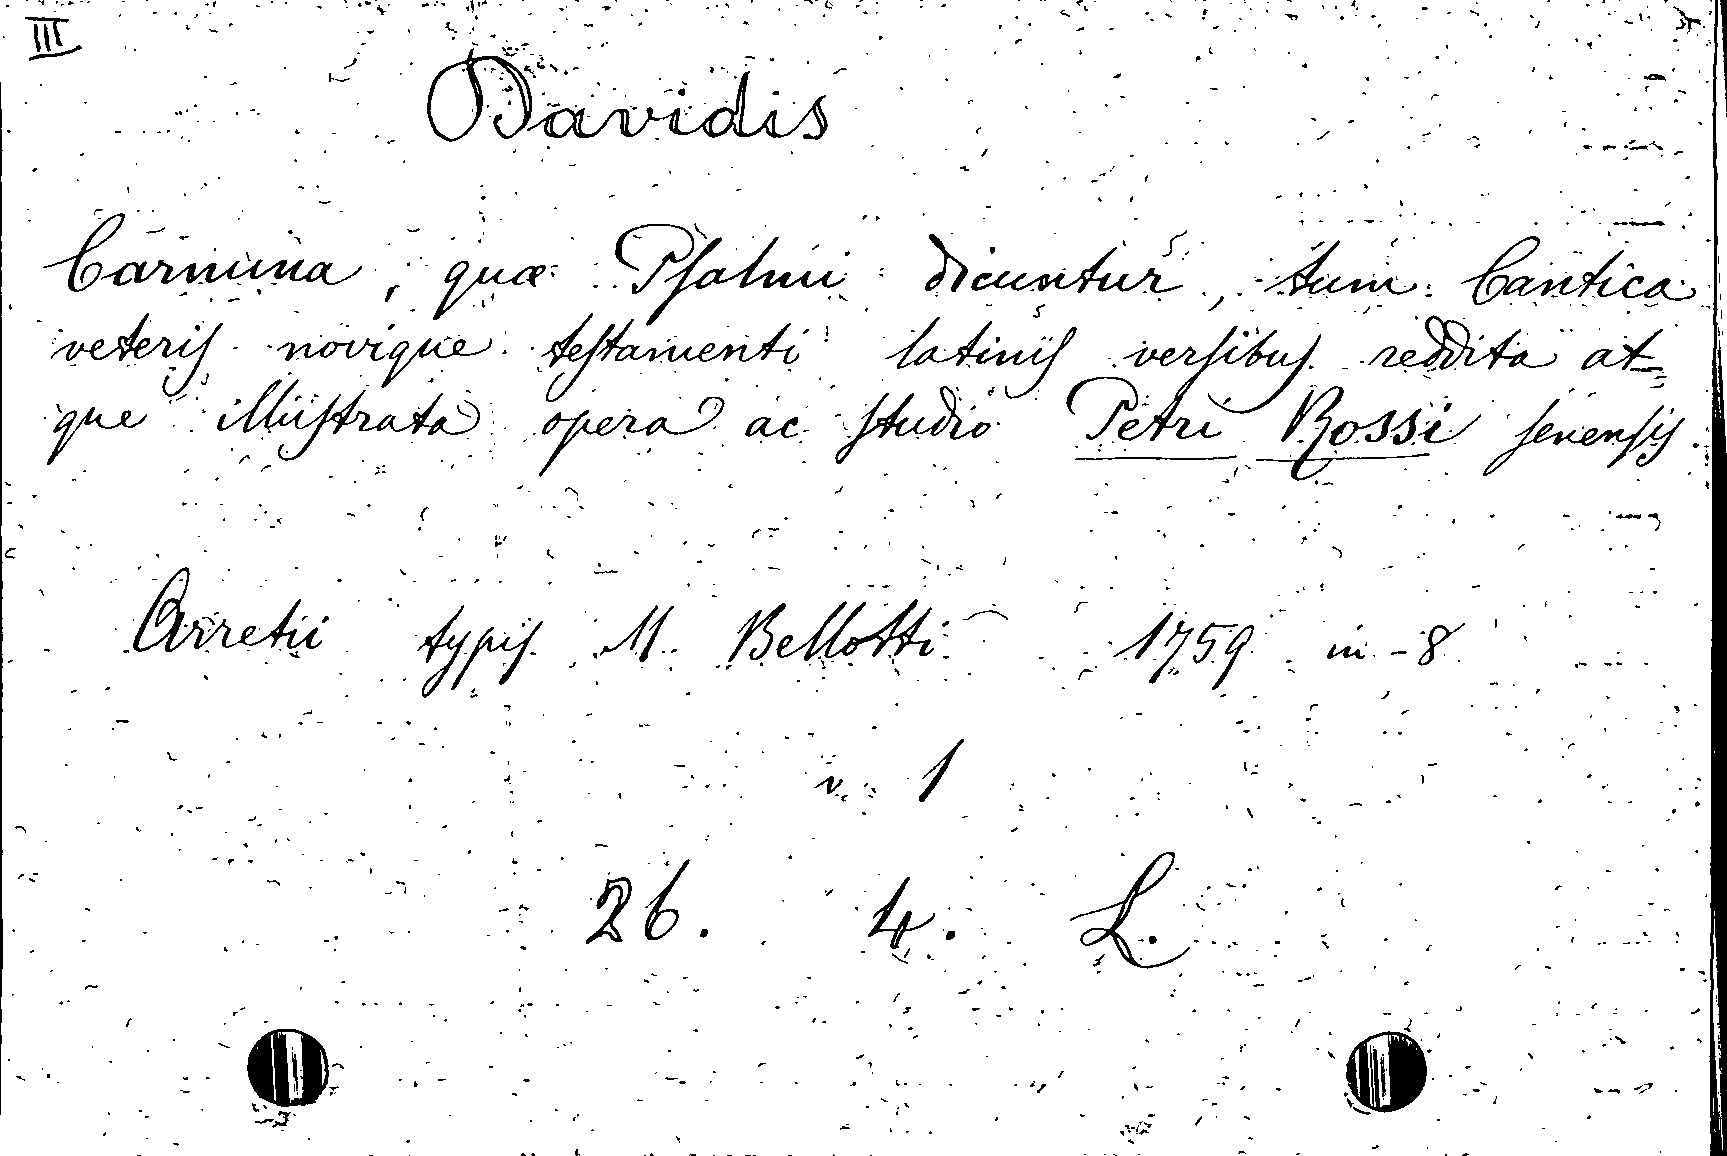 III
Davidis
Carmina, quæ Psalmi dicuntur, tum Cantica
veteris novique testamenti latinis versibus reddita at=
que illustrata opera ac studio Petri Rossi senensis.
Arretii typis M. Bellotti 1759 in-8
v. 1
26. 4. L.